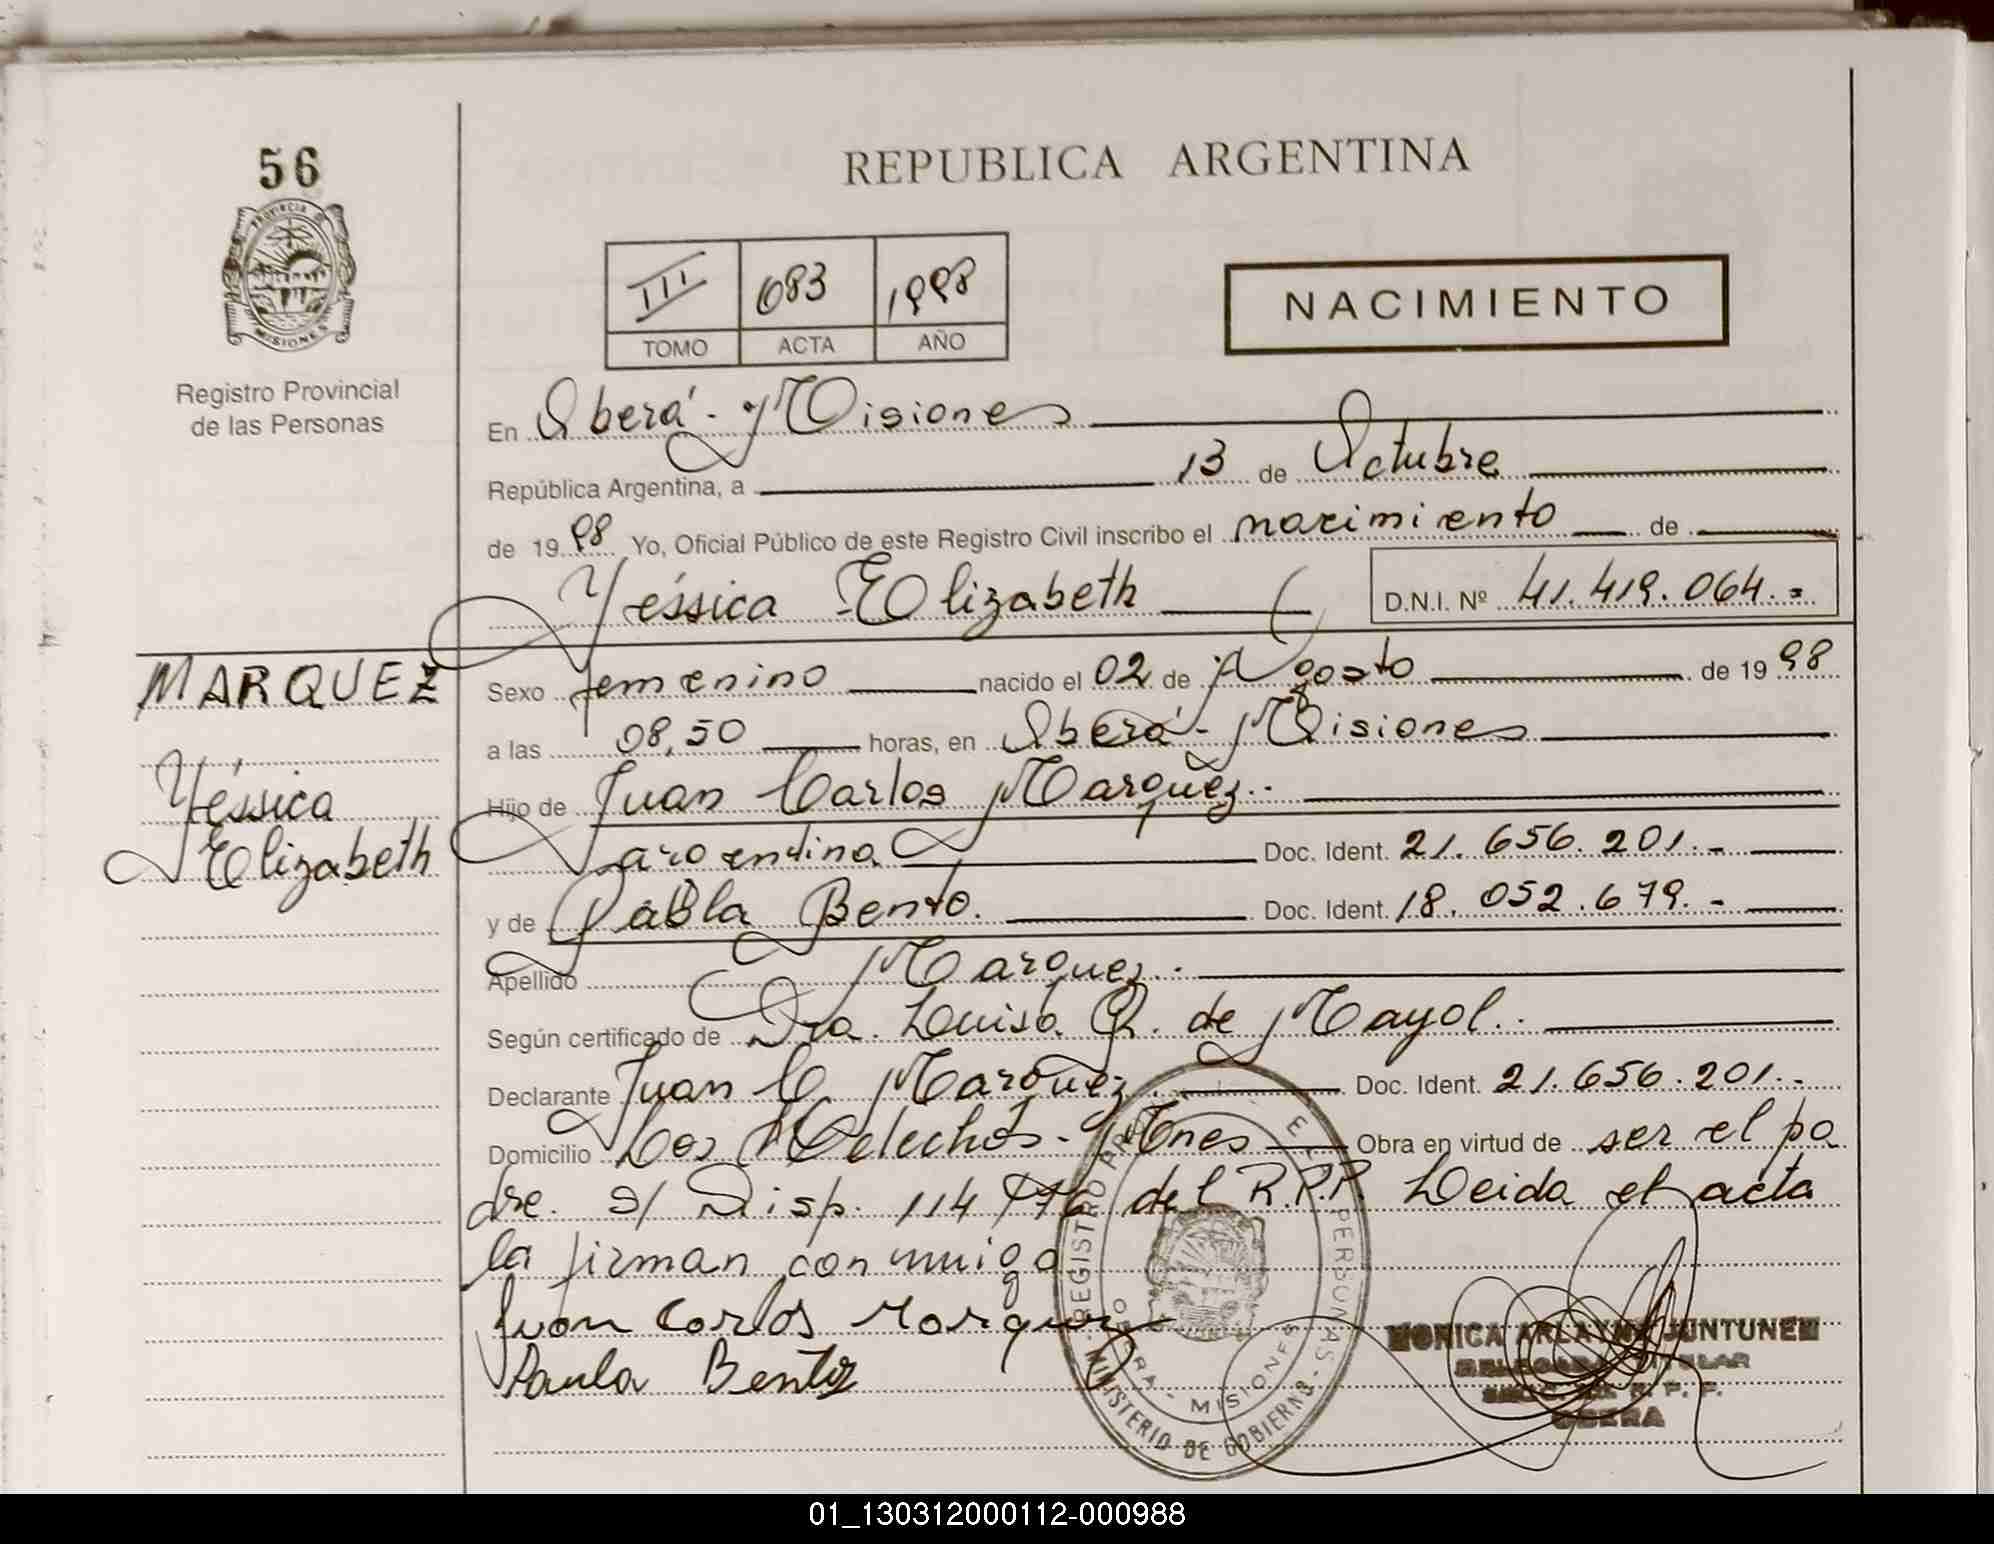 56
PROVINCIA
MISIONES
Registro Provincial
de las Personas
REPUBLICA ARGENTINA
III 083 1998
TOMO ACTA AÑO
NACIMIENTO
En Oberá - Misiones
República Argentina, a 13 de Octubre
de 1998 Yo, Oficial Público de este Registro Civil inscribo el nacimiento de
Yéssica Elizabeth D.N.I. Nº 41.419.064.=
MARQUEZ
Yéssica
Elizabeth
Sexo femenino nacido el 02 de Agosto de 1998
a las 08,50 horas, en Oberá - Misiones
Hijo de Juan Carlos Marquez.-
argentina Doc. Ident. 21.656.201.-
y de Pabla Bento. Doc. Ident. 18.052.679.-
Apellido Marquez.-
Según certificado de Dra. Luisa R. de Mayol.-
Declarante Juan C Marquez.- Doc. Ident. 21.656.201.-
Domicilio Los Helechos - Mnes Obra en virtud de ser el pa
dre. s/ Disp. 114/76 del R.P.P. Leida el acta
la firman conmigo
Juan Carlos Marquez
Paula
REGISTRO PERSONAS
OBERA - MISIONES
MINISTERIO DE GOBIERNO
MONICA JUNTUNEN
TITULAR
R. P. P.
OBERA
01_130312000112-000988